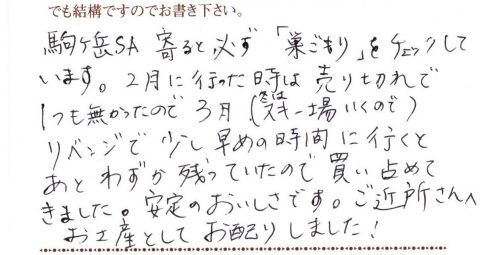 でも結構ですのでお書き下さい。
駒ヶ岳SA 寄ると必ず「巣ごもり」をチェックして
います。2月に行った時は売り切れで
1つも無かったので3月(冬はスキー場いくので)
リベンジで少し早めの時間に行くと
あとわずか残っていたので買い占めて
きました。安定のおいしさです。ご近所さんへ
お土産としてお配りしました!